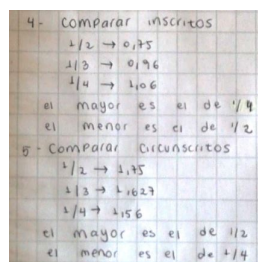 4- Comparar inscritos
1/2 → 0,75
1/3 → 0,96
1/4 → 1,06
el mayor es el de 1/4
el menor es el de 1/2
5- Comparar Circunscritos
1/2 → 1,75
1/3 → 1,627
1/4 → 1,56
el mayor es el de 1/2
el menor es el de 1/4